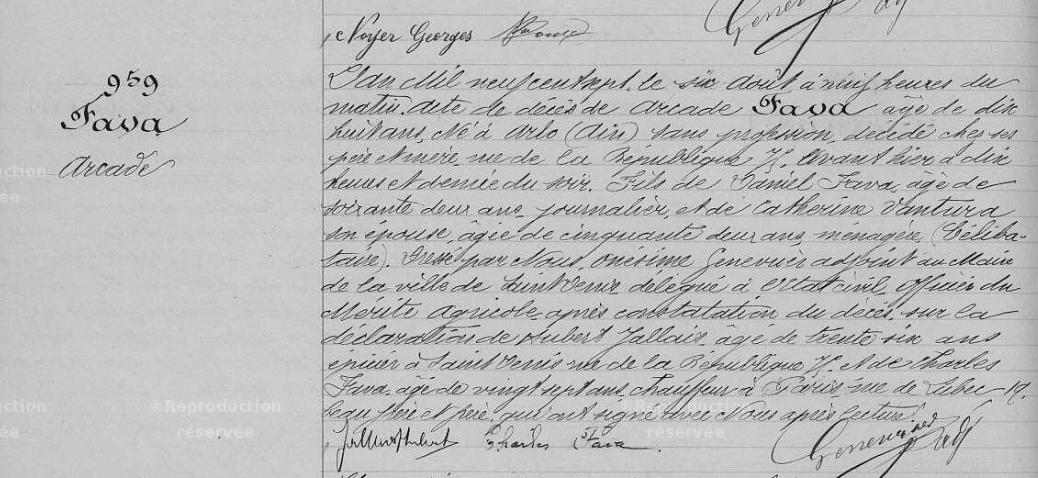 Noyer Georges
959
Fava
Arcade
L'an Mil neuf cent sept, le six Août à neuf heures du
matin. Acte de décès de Arcade Fava âgé de dix
huit ans, Né à Arlo (Ain) sans profession, décédé chez ses
père et mère, rue de la République Avant hier à dix
heures et demie du soir. Fils de Daniel Fava, âgé de
soixante deux ans, journalier, et de Catherine Vantura
son épouse, âgée de cinquante deux ans, ménagère, (Céliba-
taire). Dressé par Nous, Onésime Genevois adjoint au Maire
de la ville de Saint Denis délégué à l'Etat civil, Officier du
Mérite Agricole, après constatation du décès, sur la
déclaration de Hubert Jallais, âgé de trente six ans
épicier à Saint Denis rue de la République et de Charles
Fava, âgé de vingt sept ans, chauffeur à Paris, rue de 17.
frère, qui ont signé avec Nous après lecture.
Jallais Hubert Charles Fava Genevois adj
Reproduction
réservée